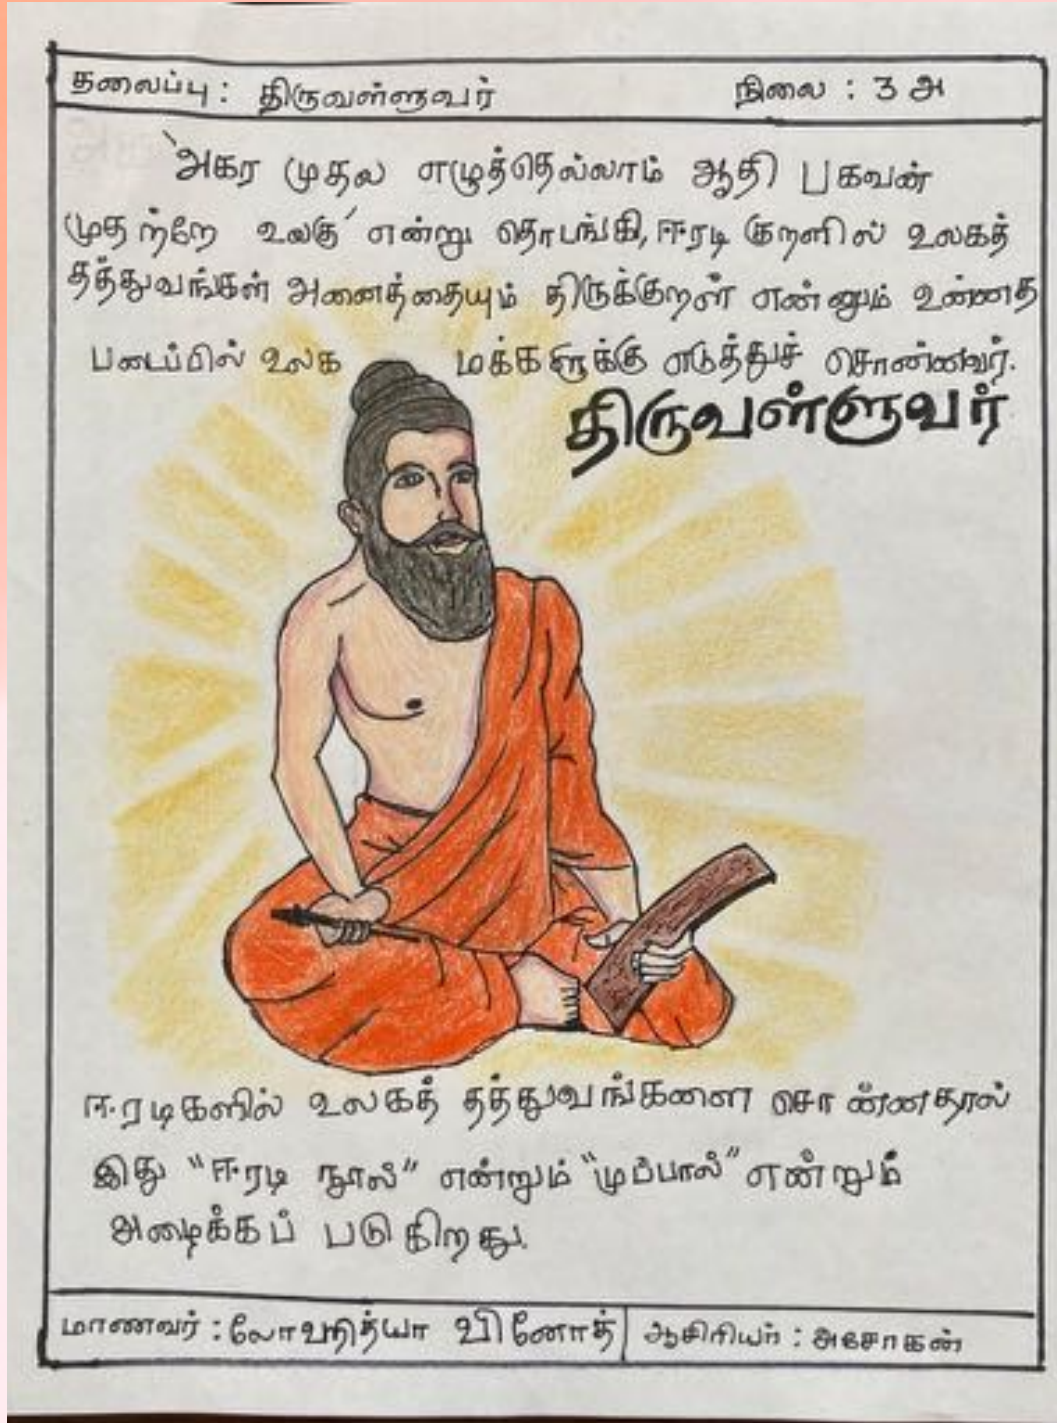 தலைப்பு : திருவள்ளுவர் நிலை : 3 அ
'அகர முதல எழுத்தெல்லாம் ஆதி பகவன்
முதற்றே உலகு' என்று தொடங்கி, ஈரடி குறளில் உலகத்
தத்துவங்கள் அனைத்தையும் திருக்குறள் என்னும் உன்னத
படைப்பில் உலக மக்களுக்கு எடுத்துச் சொன்னவர்.
திருவள்ளுவர்
ஈரடிகளில் உலகத் தத்துவங்களை சொன்னதால்
இது "ஈரடி நூல்" என்றும் "முப்பால்" என்றும்
அழைக்கப் படுகிறது.
மாணவர் : வினோத் ஆசிரியர் : அசோகன்